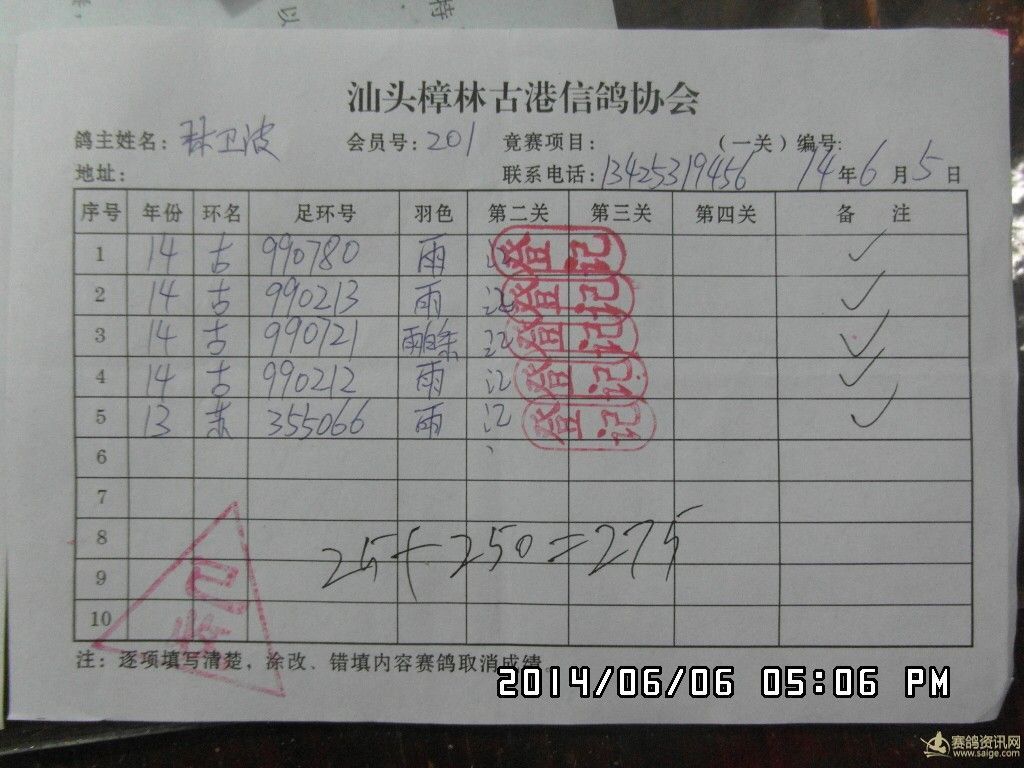 汕头樟林古港信鸽协会
鸽主姓名：林卫波 会员号：201 竟赛项目： （一关）编号：
地址： 联系电话：13425319456 14年6月5日
序号 年份 环名 足环号 羽色 第二关 第三关 第四关 备 注
1 14 古 990780 雨 江 登记 ✓
2 14 古 990213 雨 江 登记 ✓
3 14 古 990721 雨白条 江 登记 ✓
4 14 古 990212 雨 江 登记 ✓
5 13 苏 355066 雨 江 登记 ✓
6
7
8
25+250=275
9
10
注：逐项填写清楚，涂改、错填内容赛鸽取消成绩
2014/06/06 05:06 PM
赛鸽资讯网
www.saige.com